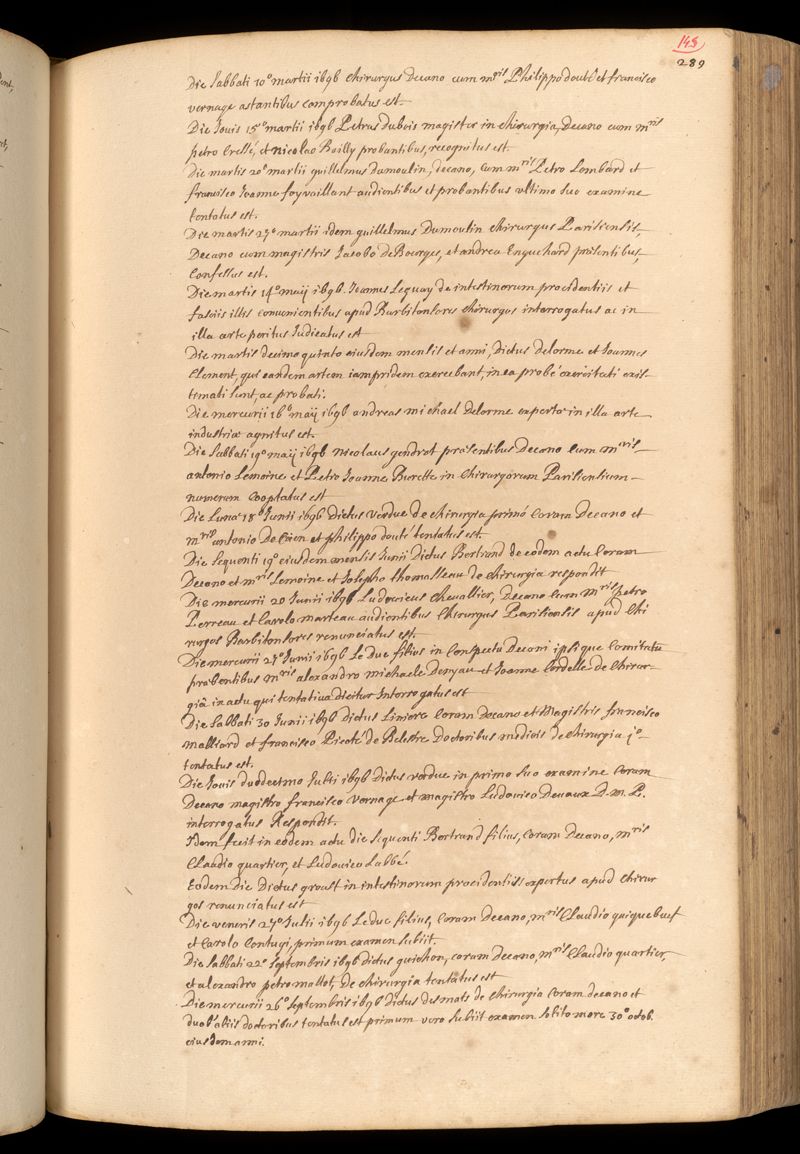 145
289
Die Sabbati 10° martii 1696 chirurgus Decano cum mris Philippo douté et francisco
vernage astantibus comprobatus est.
Die Jouis 15° martii 1696 Petrus Dubois magister in chirurgia, Decano cum mris
petro Cressé, et nicolao Bailly probantibus, recognitus est.
die martis 20° martii guillelmus dumoulin, decano, cum mris Petro Lombard et
francisco Joanne foyvaillant audientibus et probantibus vltimo suo examine
tentatus est.
Die martis 27° martii idem guillelmus Dumoulin chirurgus Parisiensis,
Decano cum magistris Jacobo DeBourges, et andrea Enguehard præsentibus,
Confessus est.
Die martis 14° maij 1696. Joannes Leguay de intestinorum procidentiis et
fasciis illis conuenientibus apud Barbitonsores chirurgos interrogatus ac in
illa arte peritus Judicatus est
Die martis decimo quinto eiusdem mensis et anni, Dictus Delorme et Joannes
Clement, qui eandem artem iampridem exercebant, in ea probe exercitati exis-
timati sunt, ac probati.
Die mercurii 16° maij 1696 andreas michael Delorme expertæ in illa arte
industriæ agnitus est.
Die Sabbati 19° maij 1696 nicolaus gendrot præsentibus Decano cum mris
antonio Lemoine et Petro Joanne Burette in Chirurgorum Parisiensium
numerum Cooptatus est
Die Lunæ 18° Junii 1696 Dictus verdue de chirurgia primó Coram Decano et
mris antonio De Caen et philippo douté tentatus est.
Die Sequenti 19° eiusdem mensis Junii Dictus Bertrand de eodem actu Coram
Decano et mris Lemoine et Josepho thomasseau de chirurgia respondit
Die mercurii 20 Junii 1696 Ludovicus Cheuallier, Decano cum mris petro
Perreau et Carolo marteau audientibus Chirurgus Parisiensis apud Chi
rurgos Barbitonsores renunciatus est.
Die mercurii 27° Junii 1696 Le Duc filius in Conspectu Decani ipsique Comitatu
præbentibus mris alexandro michaele Denyau et Joanne Cordelle de Chirur-
giâ in actu qui tentativa dicitur Interrogatus est
Die Sabbati 30 Junii 1696 dictus Simiere Coram Decano et Magistris francisco
Malliard et francisco Picoté de Belestre Doctoribus medicis de chirurgia j°
tentatus est.
Die Jouis duodecimo Julii 1696 Dictus verdue in primo suo examine Coram
Decano magistro francisco vernage et magistro Ludovico Deuaux D. M. P.
interrogatus Respondit.
Idem fecit in eodem actu die Sequenti Bertrand filius, Coram Decano, mris
Claudio quartier, et Ludouico Labbé.
Eodem Die Dictus groust in intestinorum procidentiis expertus apud chirur
gos renunciatus est
Die veneris 27° Julii 1696 Leduc filius, Coram Decano, mris Claudio quiquebeuf
et Carolo Contugi, primum examen subiit.
Die Sabbati 22° septembris 1696 dictus guichon, coram Decano, mris Claudio quartier,
et alexandro petro mattot, De chirurgia tentatus est
Die mercurii 26° septembris 1696 dictus desmats de chirurgia Coram decano et
duob. aliis doctoribus tentatus est primum vero subiit examen solito more 30° octob.
eiusdem anni.